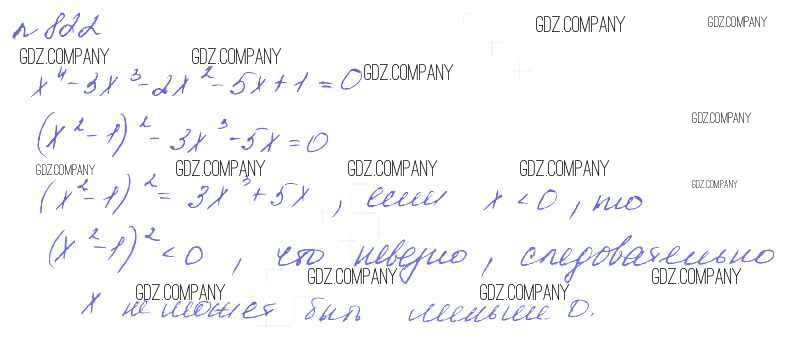 №822
GDZ.COMPANY GDZ.COMPANY
GDZ.COMPANY GDZ.COMPANY
x⁴-3x³-2x²-5x+1=0 GDZ.COMPANY
(x²-1)²-3x³-5x=0 GDZ.COMPANY
GDZ.COMPANY GDZ.COMPANY GDZ.COMPANY GDZ.COMPANY
(x²-1)²=3x³+5x, если x<0, то GDZ.COMPANY
(x²-1)²<0, что неверно, следовательно
GDZ.COMPANY GDZ.COMPANY GDZ.COMPANY GDZ.COMPANY
x не может быть меньше 0.